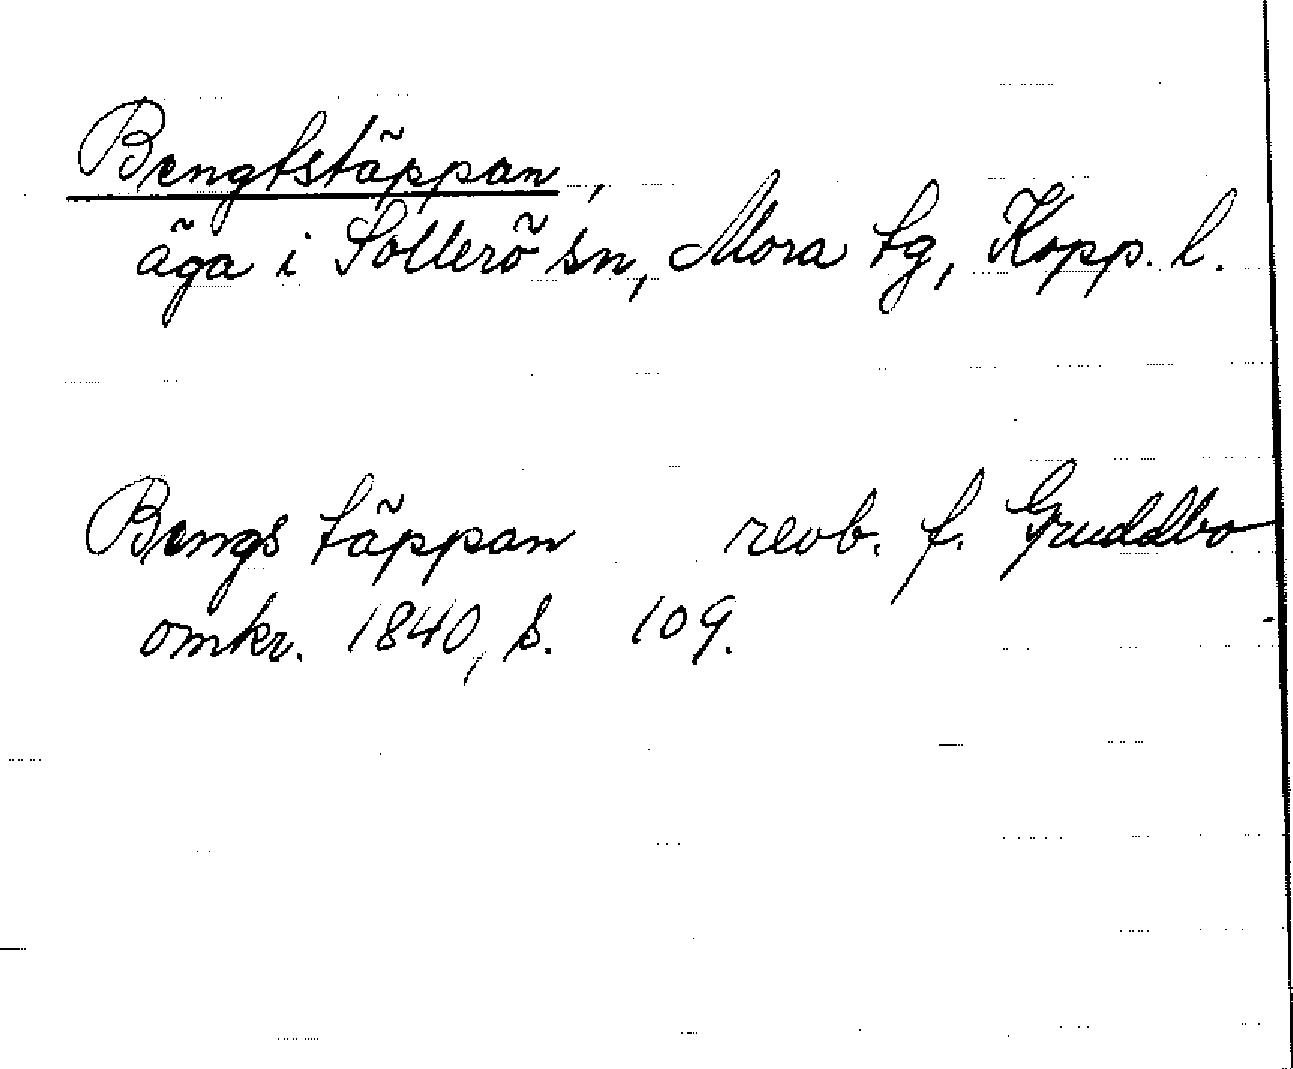 Bengtstäppan,
äga i Sollerö sn, Mora tg, Kopp. l.
Bengs täppan revb. f. Gruddbo
omkr. 1840, s. 109.